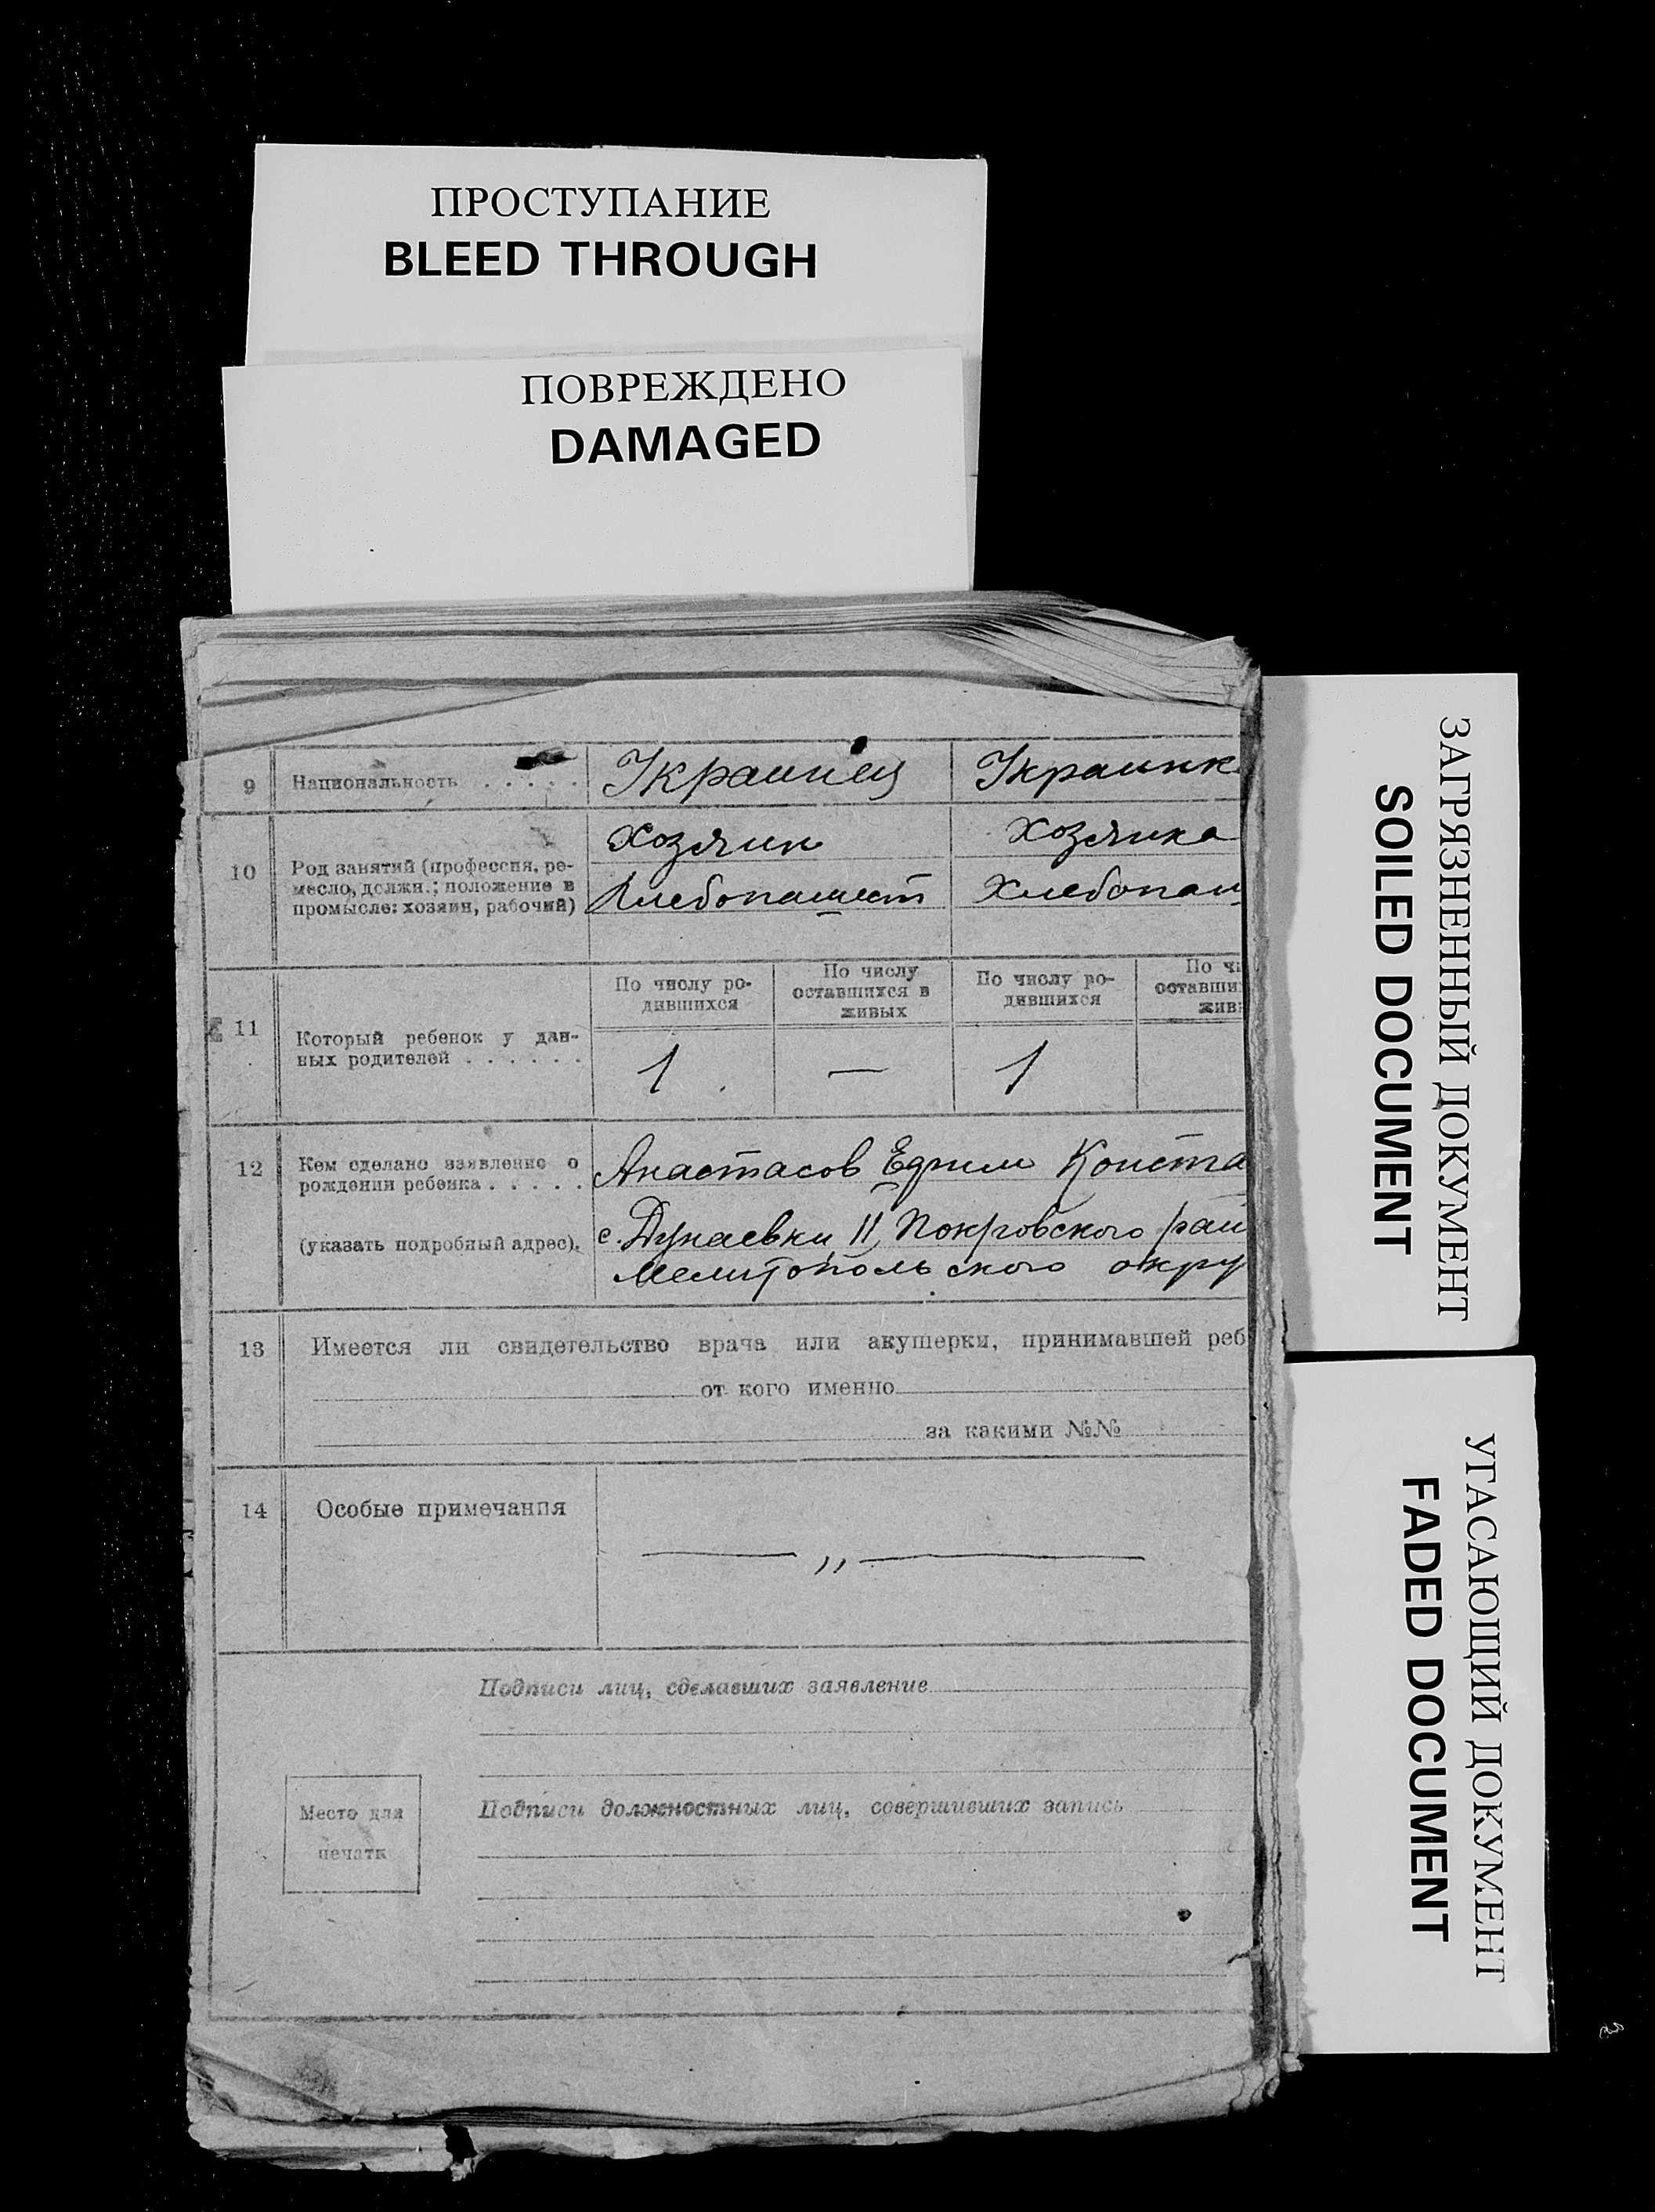 ПРОСТУПАНИЕ
BLEED THROUGH
ПОВРЕЖДЕНО
DAMAGED
9 Национальность . . . . . Украинец Украинк
10 Род занятий (профессия, ре-
месло, должн.; положение в
промысле: хозяин, рабочий)
Хозяин Хозяика
Хлебопашест Хлебопаш
11 Который ребенок у дан-
ных родителей . . . . . .
По числу ро-
дившихся
По числу
оставшихся в
живых
По числу ро-
дившихся
По чи
оставши
жив
1 — 1
12 Кем сделано заявление о
рождении ребенка . . . . .
(указать подробный адрес).
Анастасов Ефим Конста
с. Дунаевки II, Покровского рай
Мелитопольского окру
13 Имеется ли свидетельство врача или акушерки, принимавшей реб
от кого именно
за какими №№
14 Особые примечания
— „ —
Подписи лиц, сделавших заявление
Подписи должностных лиц, совершивших запись
Место для
печати
ЗАГРЯЗНЕННЫЙ ДОКУМЕНТ
SOILED DOCUMENT
УГАСАЮЩИЙ ДОКУМЕНТ
FADED DOCUMENT